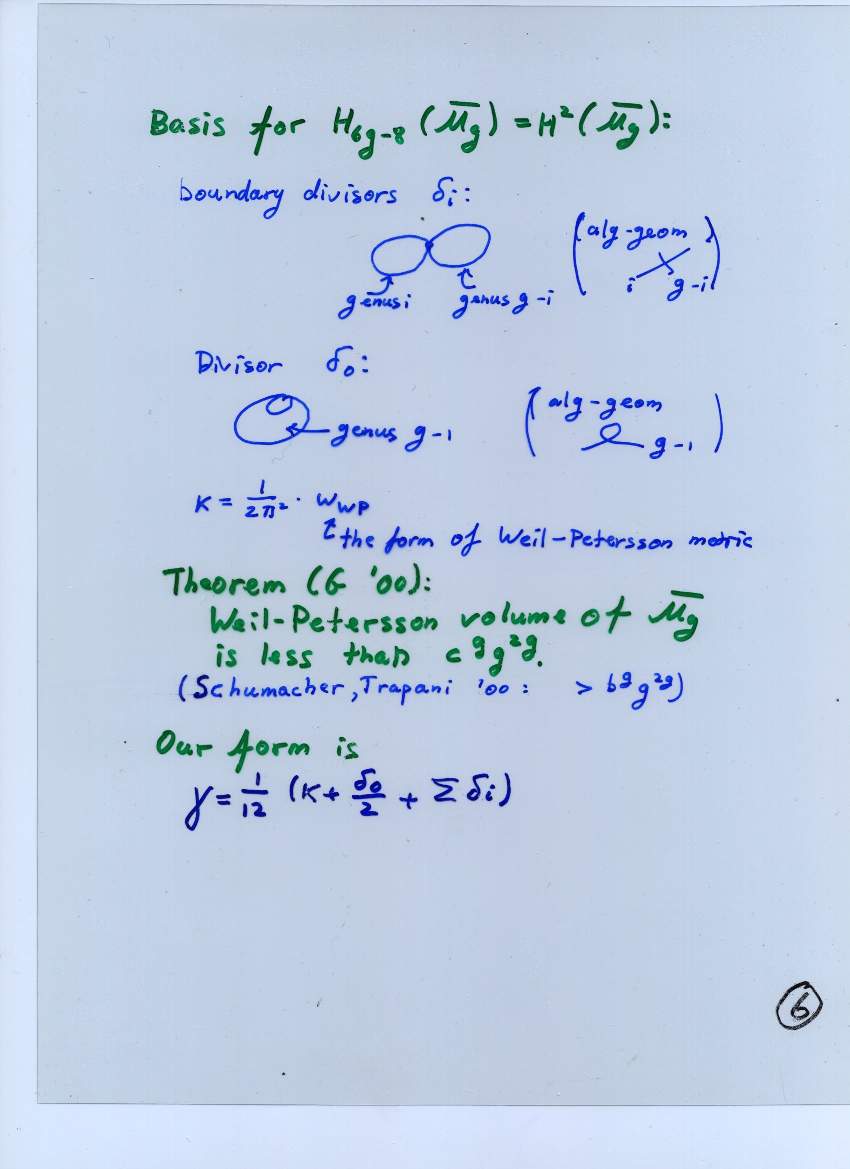 Basis for H₆g₋₈ (M̅g) = H² (M̅g):
boundary divisors δi:
(alg-geom)
i g-i
genus i genus g-i
Divisor δ₀:
(alg-geom
genus g-1
g-1)
κ = 1/2π² · ωWP
the form of Weil-Petersson metric
Theorem (G '00):
Weil-Petersson volume of M̅g
is less than c^g g^2g.
(Schumacher, Trapani '00: > b^g g^2g)
Our form is
γ = 1/12 (κ + δ₀/2 + Σ δi)
6